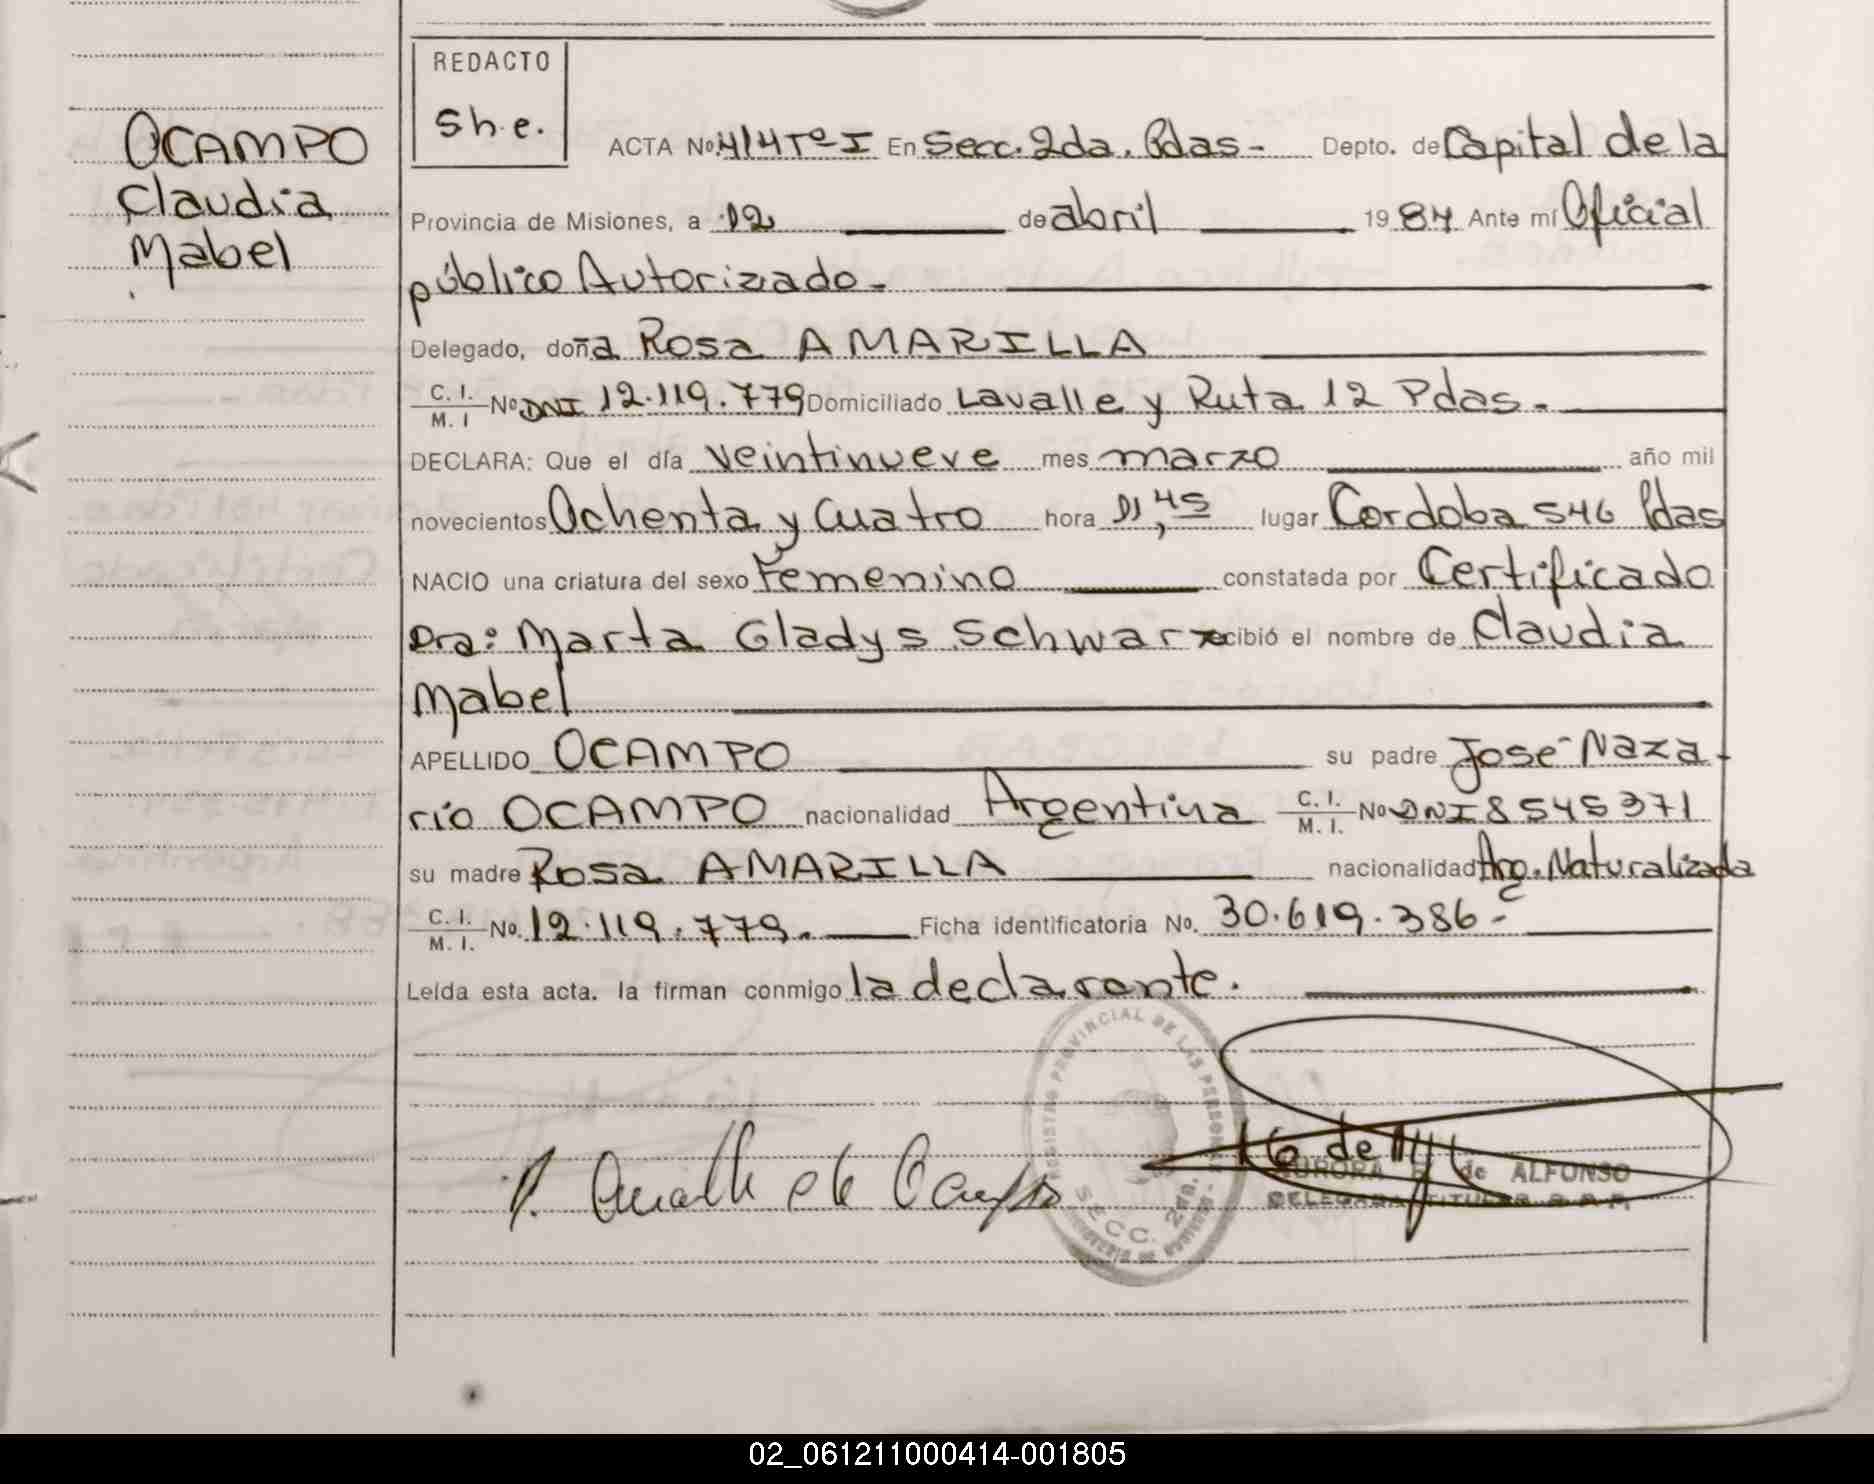 REDACTO
She.
OCAMPO
Claudia
Mabel
ACTA No. 414 Tº I En Secc. 2da. Pdas- Depto. de Capital de la
Provincia de Misiones, a 12 de abril 1984 Ante mí Oficial
público Autorizado-
Delegado, doña Rosa AMARILLA
C. I. M. I No DNI 12.119.779 Domiciliado Lavalle y Ruta 12 Pdas-
DECLARA: Que el día veintinueve mes marzo año mil
novecientos Ochenta y Cuatro hora 11,45 lugar Cordoba 546 Pdas
NACIO una criatura del sexo Femenino constatada por Certificado
Dra: Marta Gladys Schwarz recibió el nombre de Claudia
Mabel
APELLIDO OCAMPO su padre José Naza-
rio OCAMPO nacionalidad Argentina C. I. M. I. No DNI 8545371
su madre Rosa AMARILLA nacionalidad Arg. Naturalizada
C. I. M. I. No. 12.119.779. Ficha identificatoria No. 30.619.386-
Leída esta acta. la firman conmigo la declarante.
REGISTRO PROVINCIAL DE LAS PERSONAS
SECC. 2da.
R. Amarilla de Ocampo
AURORA de ALFONSO
DELEGADA TITULAR
02_061211000414-001805